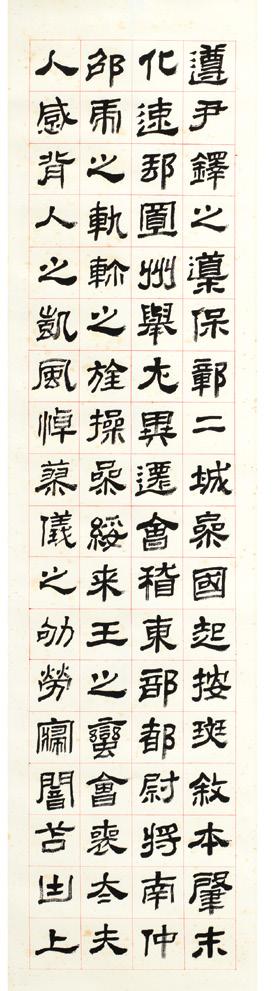 遵尹鐸之導保鄣二城參國起按斑敘本肇末
化速郵置州舉尤異遷會稽東部都尉將南仲
邵虎之軌軫之旌操參綏来王之蠻會喪太夫
人感背人之凱風悼蓼儀之劬勞寢闇苫凷上